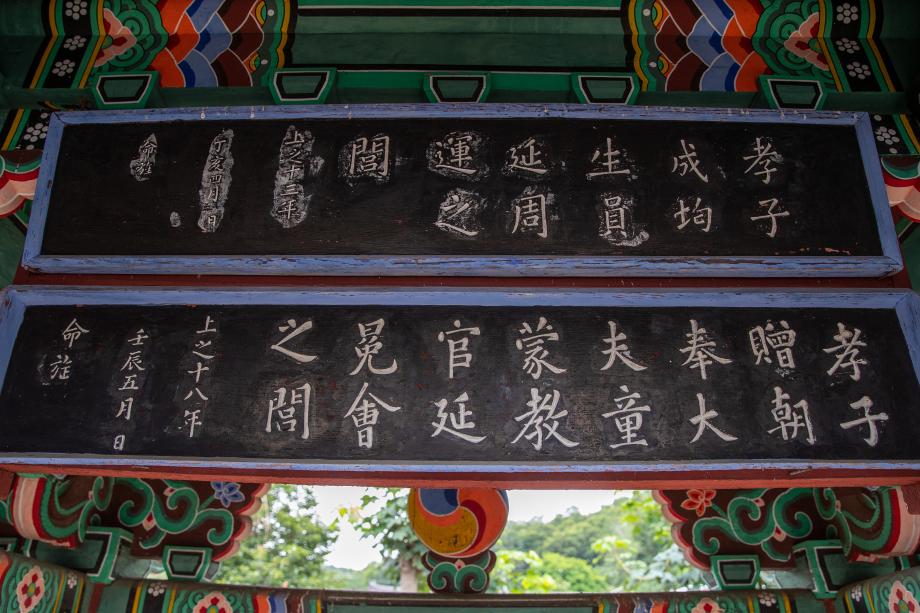 孝子
成均
生員
延周
運之
閭
上之十三年
丁亥四月日
命旌
孝子
贈朝
奉大
夫童
蒙教
官延
冕會
之閭
上之十八年
壬辰五月日
命旌